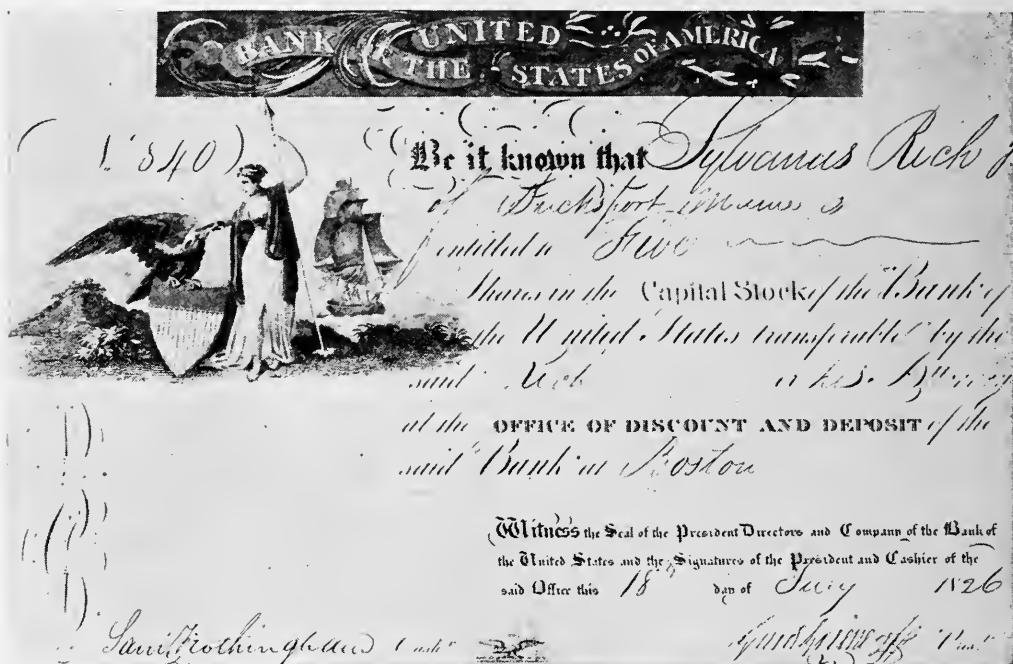 BANK OF THE UNITED STATES OF AMERICA
Be it known that Sylvanus Rich
of Bucksport Maine is
entitled to Five
Shares in the Capital Stock of the Bank of
the United States transferable by the
said Rich or his Attorney
at the OFFICE OF DISCOUNT AND DEPOSIT of the
said Bank at Boston
Witness the Seal of the President Directors and Company of the Bank of
the United States and the Signatures of the President and Cashier of the
said Office this 18 day of July 1826
Saml Frothingham Cashr